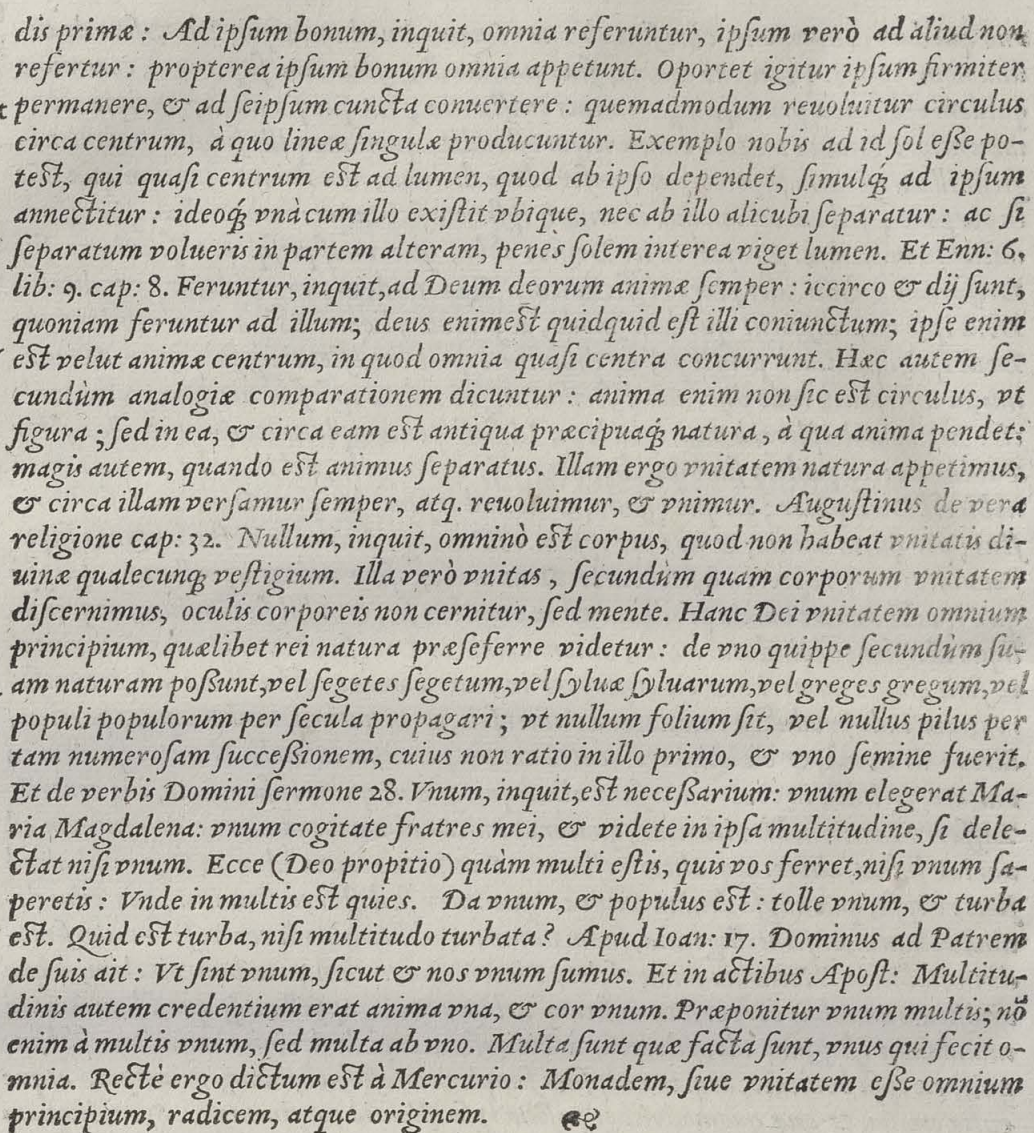 dis primæ: Ad ipſum bonum, inquit, omnia referuntur, ipſum verò ad aliud non
refertur: propterea ipſum bonum omnia appetunt. Oportet igitur ipſum firmiter
permanere, & ad ſeipſum cuncta conuertere: quemadmodum reuoluitur circulus
circa centrum, à quo lineæ ſingulæ producuntur. Exemplo nobis ad id ſol eſſe po-
teſt, qui quaſi centrum eſt ad lumen, quod ab ipſo dependet, ſimulq́; ad ipſum
annectitur: ideoq́; vnà cum illo exiſtit vbique, nec ab illo alicubi ſeparatur: ac ſi
ſeparatum volueris in partem alteram, penès ſolem interea viget lumen. Et Enn: 6.
lib: 9. cap: 8. Feruntur, inquit, ad Deum deorum animæ ſemper: iccirco & dij ſunt,
quoniam feruntur ad illum; deus enim eſt quidquid eſt illi coniunctum; ipſe enim
eſt velut animæ centrum, in quod omnia quaſi centra concurrunt. Hæc autem ſe-
cundùm analogiæ comparationem dicuntur: anima enim non ſic eſt circulus, vt
figura; ſed in ea, & circa eam eſt antiqua præcipuaq́; natura, à qua anima pendet:
magis autem, quando eſt animus ſeparatus. Illam ergo vnitatem natura appetimus,
& circa illam verſamur ſemper, atq. reuoluimur, & vnimur. Auguſtinus de vera
religione cap: 32. Nullum, inquit, omninò eſt corpus, quod non habeat vnitatis di-
uinæ qualecunq; veſtigium. Illa verò vnitas, ſecundùm quam corporum vnitatem
diſcernimus, oculis corporeis non cernitur, ſed mente. Hanc Dei vnitatem omnium
principium, quælibet rei natura præſeferre videtur: de vno quippe ſecundùm ſu-
am naturam poſſunt, vel ſegetes ſegetum, vel ſyluæ ſyluarum, vel greges gregum, vel
populi populorum per ſecula propagari; vt nullum folium ſit, vel nullus pilus per
tam numeroſam ſucceſſionem, cuius non ratio in illo primo, & vno ſemine fuerit.
Et de verbis Domini ſermone 28. Vnum, inquit, eſt neceſſarium: vnum elegerat Ma-
ria Magdalena: vnum cogitate fratres mei, & videte in ipſa multitudine, ſi dele-
ctat niſi vnum. Ecce (Deo propitio) quàm multi eſtis, quis vos ferret, niſi vnum ſa-
peretis: Vnde in multis eſt quies. Da vnum, & populus eſt: tolle vnum, & turba
eſt. Quid eſt turba, niſi multitudo turbata? Apud Ioan: 17. Dominus ad Patrem
de ſuis ait: Vt ſint vnum, ſicut & nos vnum ſumus. Et in actibus Apoſt: Multitu-
dinis autem credentium erat anima vna, & cor vnum. Præponitur vnum multis; nõ
enim à multis vnum, ſed multa ab vno. Multa ſunt quæ facta ſunt, vnus qui fecit o-
mnia. Rectè ergo dictum eſt à Mercurio: Monadem, ſiue vnitatem eſſe omnium
principium, radicem, atque originem.